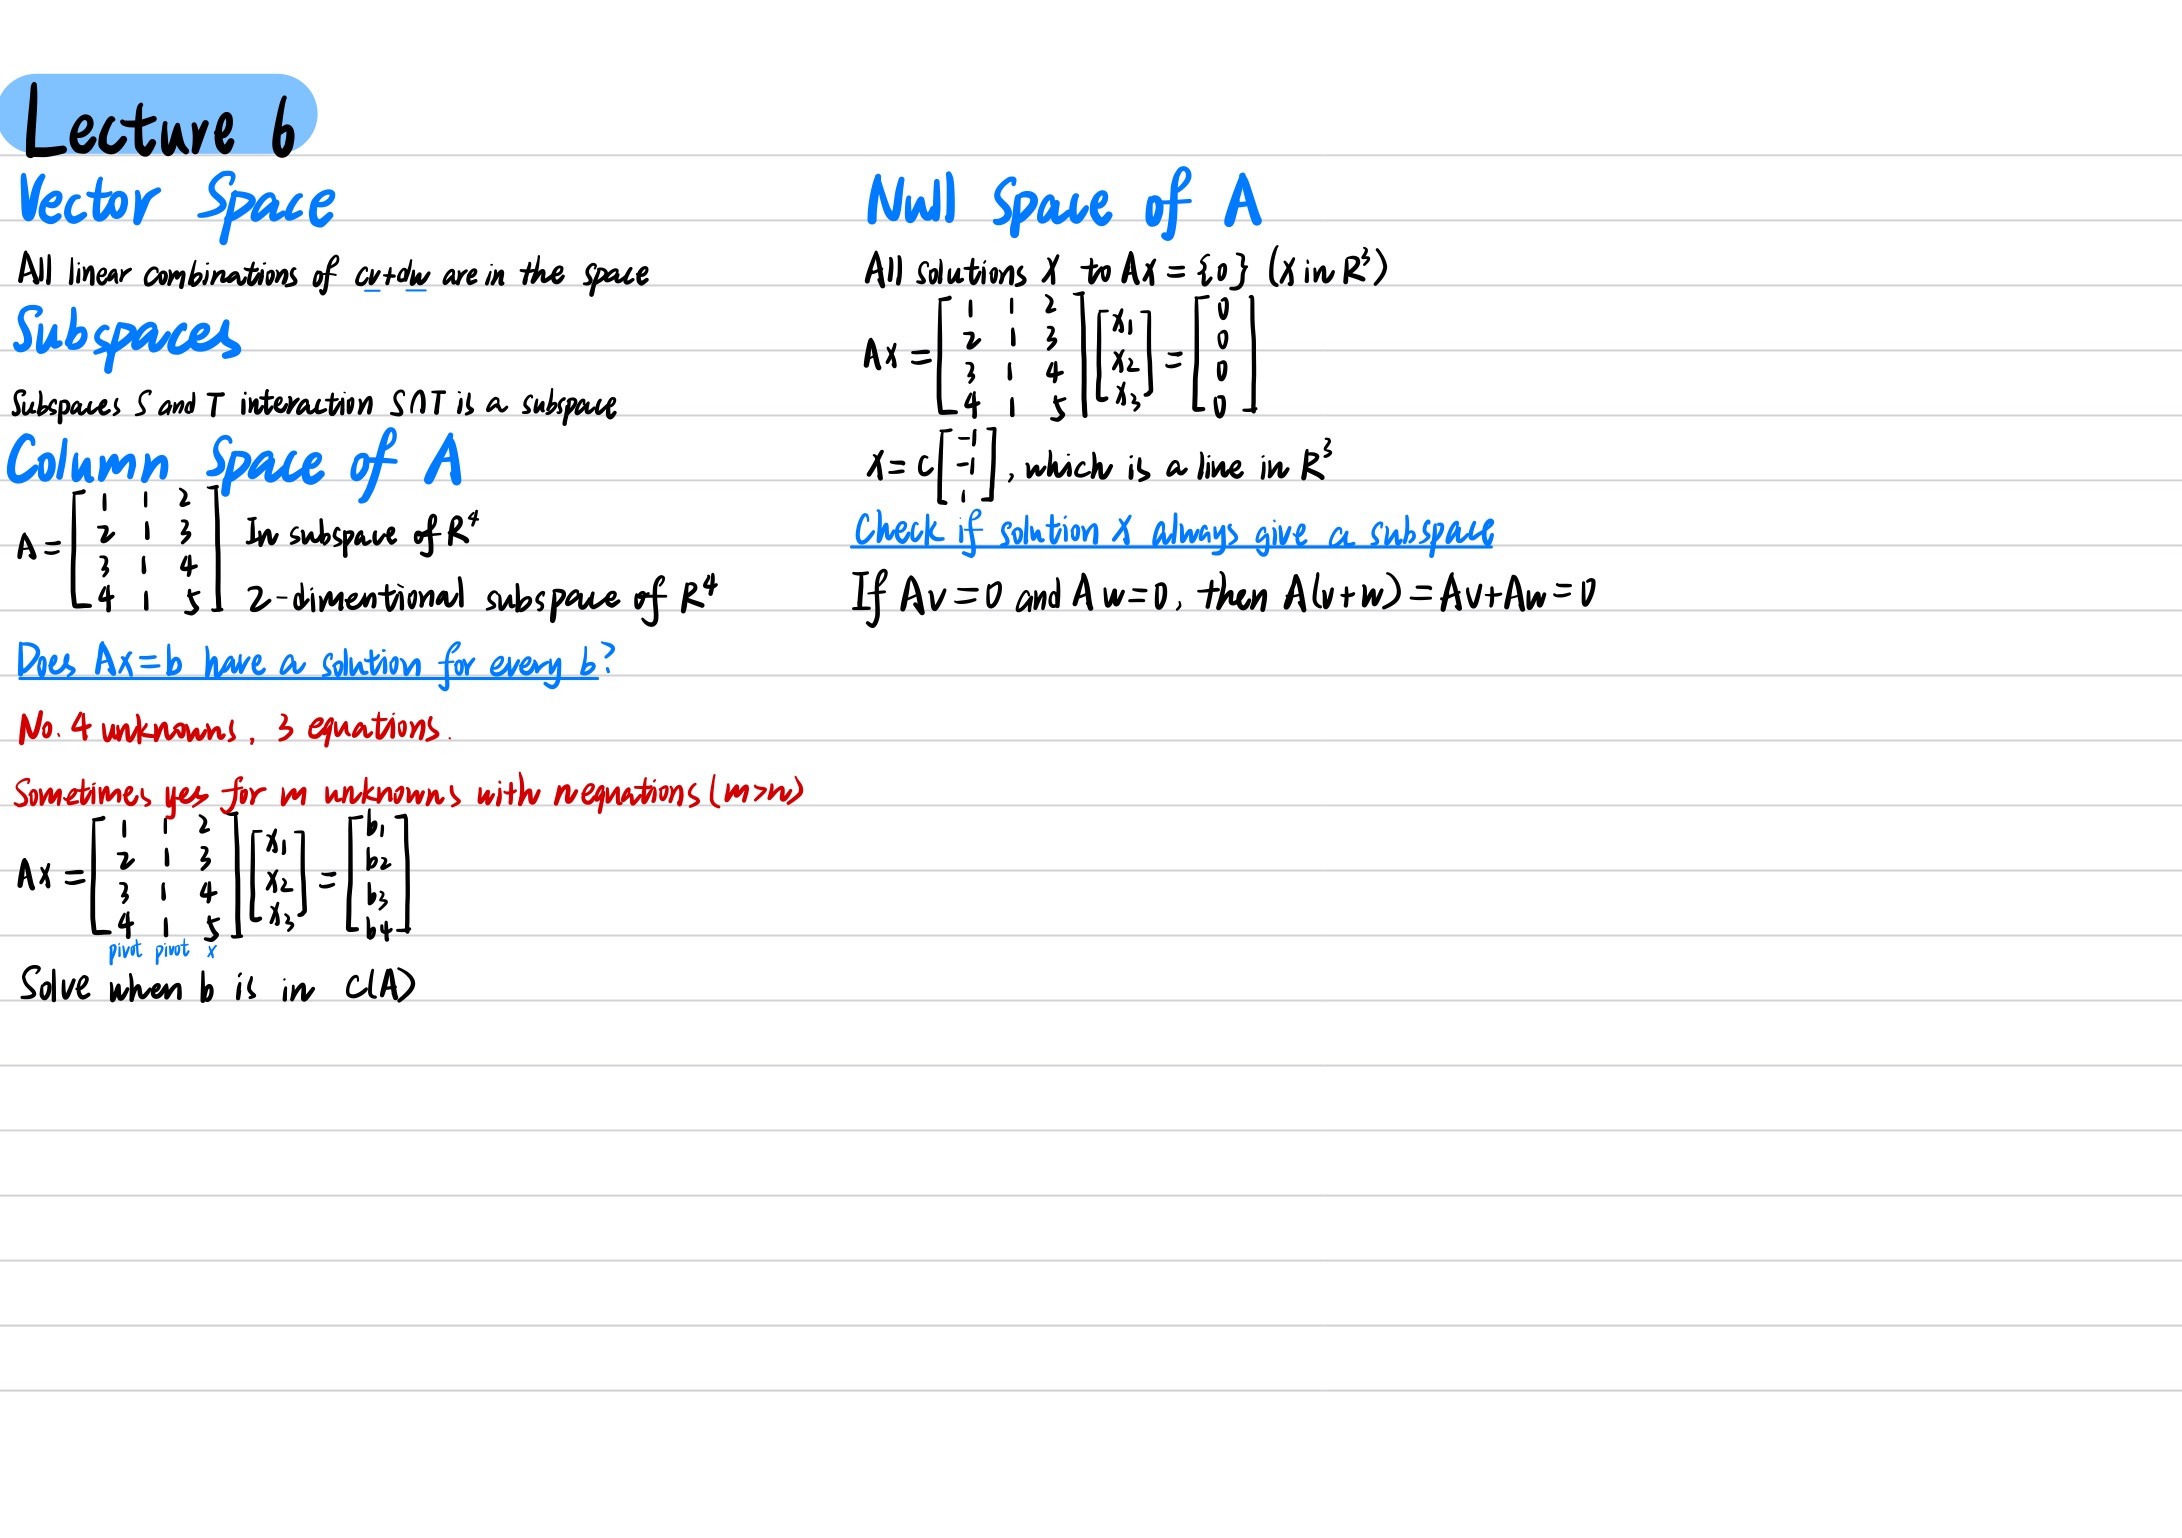 Lecture 6
Vector Space
All linear combinations of cv+dw are in the space
Subspaces
Subspaces S and T interaction S∩T is a subspace
Column Space of A
A = [1 1 2; 2 1 3; 3 1 4; 4 1 5]
In subspace of R⁴
2-dimentional subspace of R⁴
Does Ax=b have a solution for every b?
No. 4 unknowns, 3 equations.
Sometimes yes for m unknowns with n equations (m>n)
Ax = [1 1 2; 2 1 3; 3 1 4; 4 1 5] [x₁; x₂; x₃] = [b₁; b₂; b₃; b₄]
pivot pivot x
Solve when b is in C(A)
Null Space of A
All solutions X to Ax = {0} (X in R³)
Ax = [1 1 2; 2 1 3; 3 1 4; 4 1 5] [x₁; x₂; x₃] = [0; 0; 0; 0]
X = c [-1; -1; 1], which is a line in R³
Check if solution X always give a subspace
If Av=0 and Aw=0, then A(v+w)=Av+Aw=0